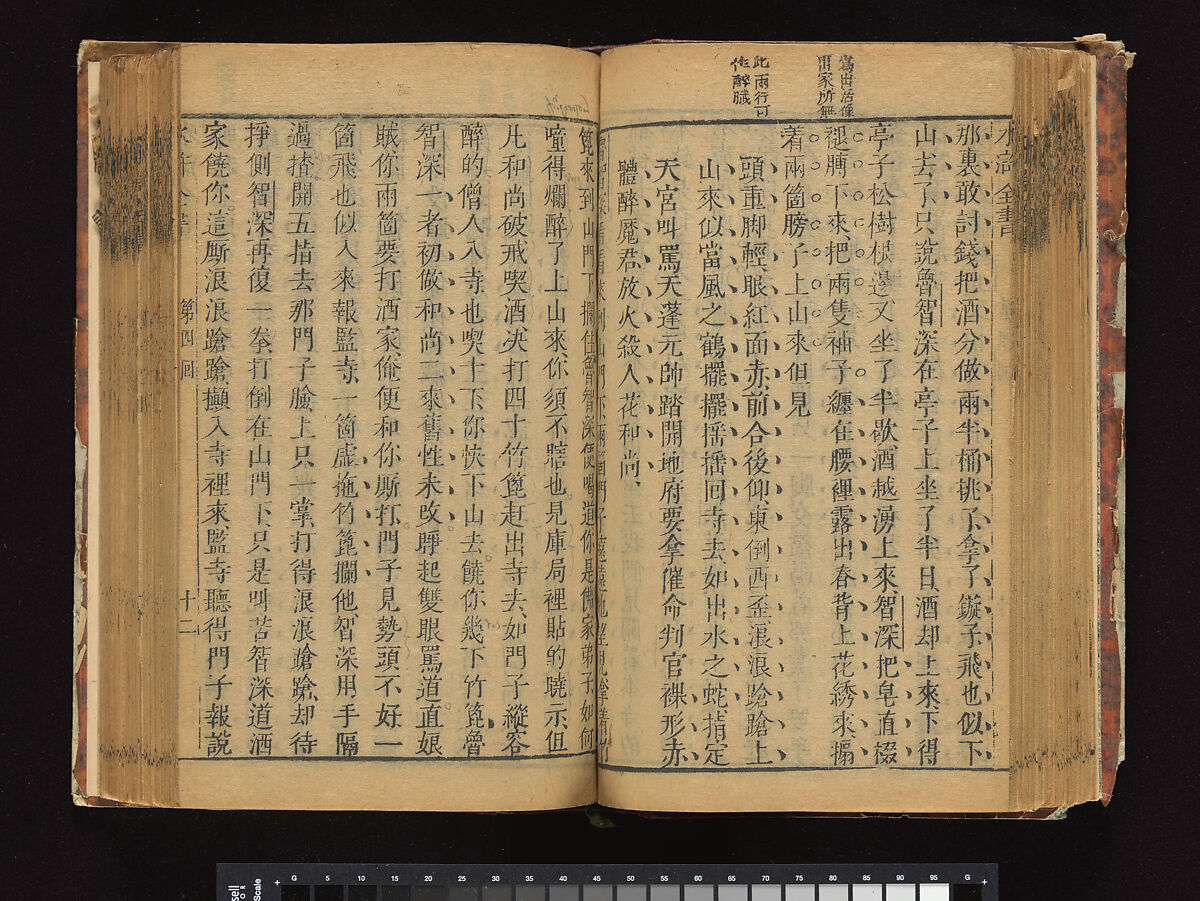 寫出活像
出家所無
此兩行可
作醉
水滸全書
那裏敢討錢把酒分做兩半桶挑了拿了鏇子飛也似下
山去了只說魯智深在亭子上坐了半日酒却上來下得
亭子松樹根邊又坐了半歇酒越湧上來智深把皂直裰
褪膊下來把兩隻袖子纏在腰裡露出脊背上花綉來搧
着兩箇膀子上山來但見
頭重脚輕眼紅面赤前合後仰東倒西歪浪浪蹌蹌上
山來似當風之鶴擺擺揺揺回寺去如出水之蛇指定
天宮叫罵天蓬元帥踏開地府要拿催命判官裸形赤
體醉魔君放火殺人花和尚
魯智深看看來到山門下兩箇門子遠遠地望見拿着竹
篦來到山門下攔住魯智深便喝道你是佛家弟子如何
噇得爛醉了上山來你須不瞎也見庫局裡貼的曉示但
凡和尚破戒喫酒決打四十竹篦赶出寺去如門子縱容
醉的僧人入寺也喫十下你快下山去饒你幾下竹篦魯
智深一者初做和尚二來舊性未改睜起雙眼罵道直娘
賊你兩箇要打洒家俺便和你厮打門子見勢頭不好一
箇飛也似入來報監寺一箇虛拖竹篦攔他智深用手隔
過揸開五指去那門子臉上只一掌打得浪浪蹌蹌却待
掙側智深再復一拳打倒在山門下只是叫苦智深道洒
家饒你這厮浪浪蹌蹌攧入寺裡來監寺聽得門子報說
水滸全書 第四回 十二
Scale
G 5 10 15 20 25 30 35 40 45 50 55 60 65 70 75 80 85 90 95 G